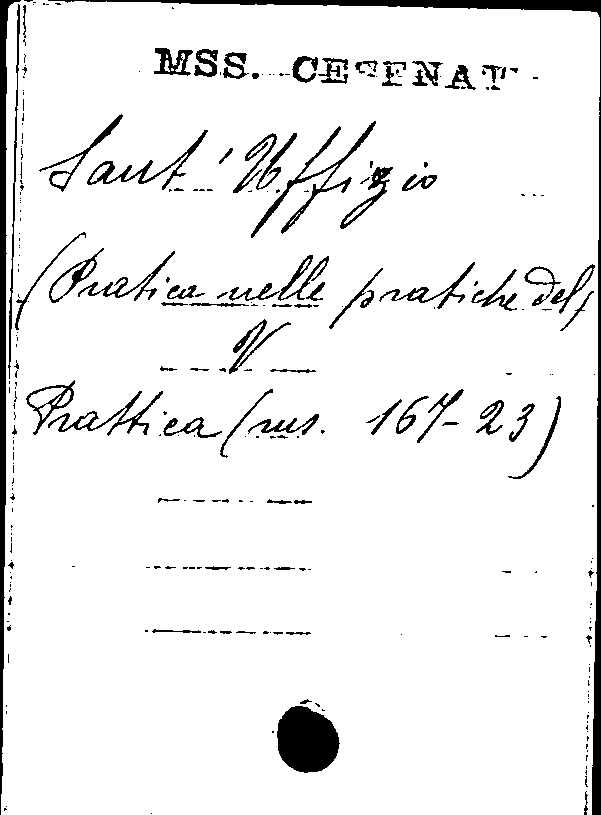 MSS. CESENAT
Sant'Uffizio
(Pratica nelle pratiche del)
V
Prattica (ms. 167-23)